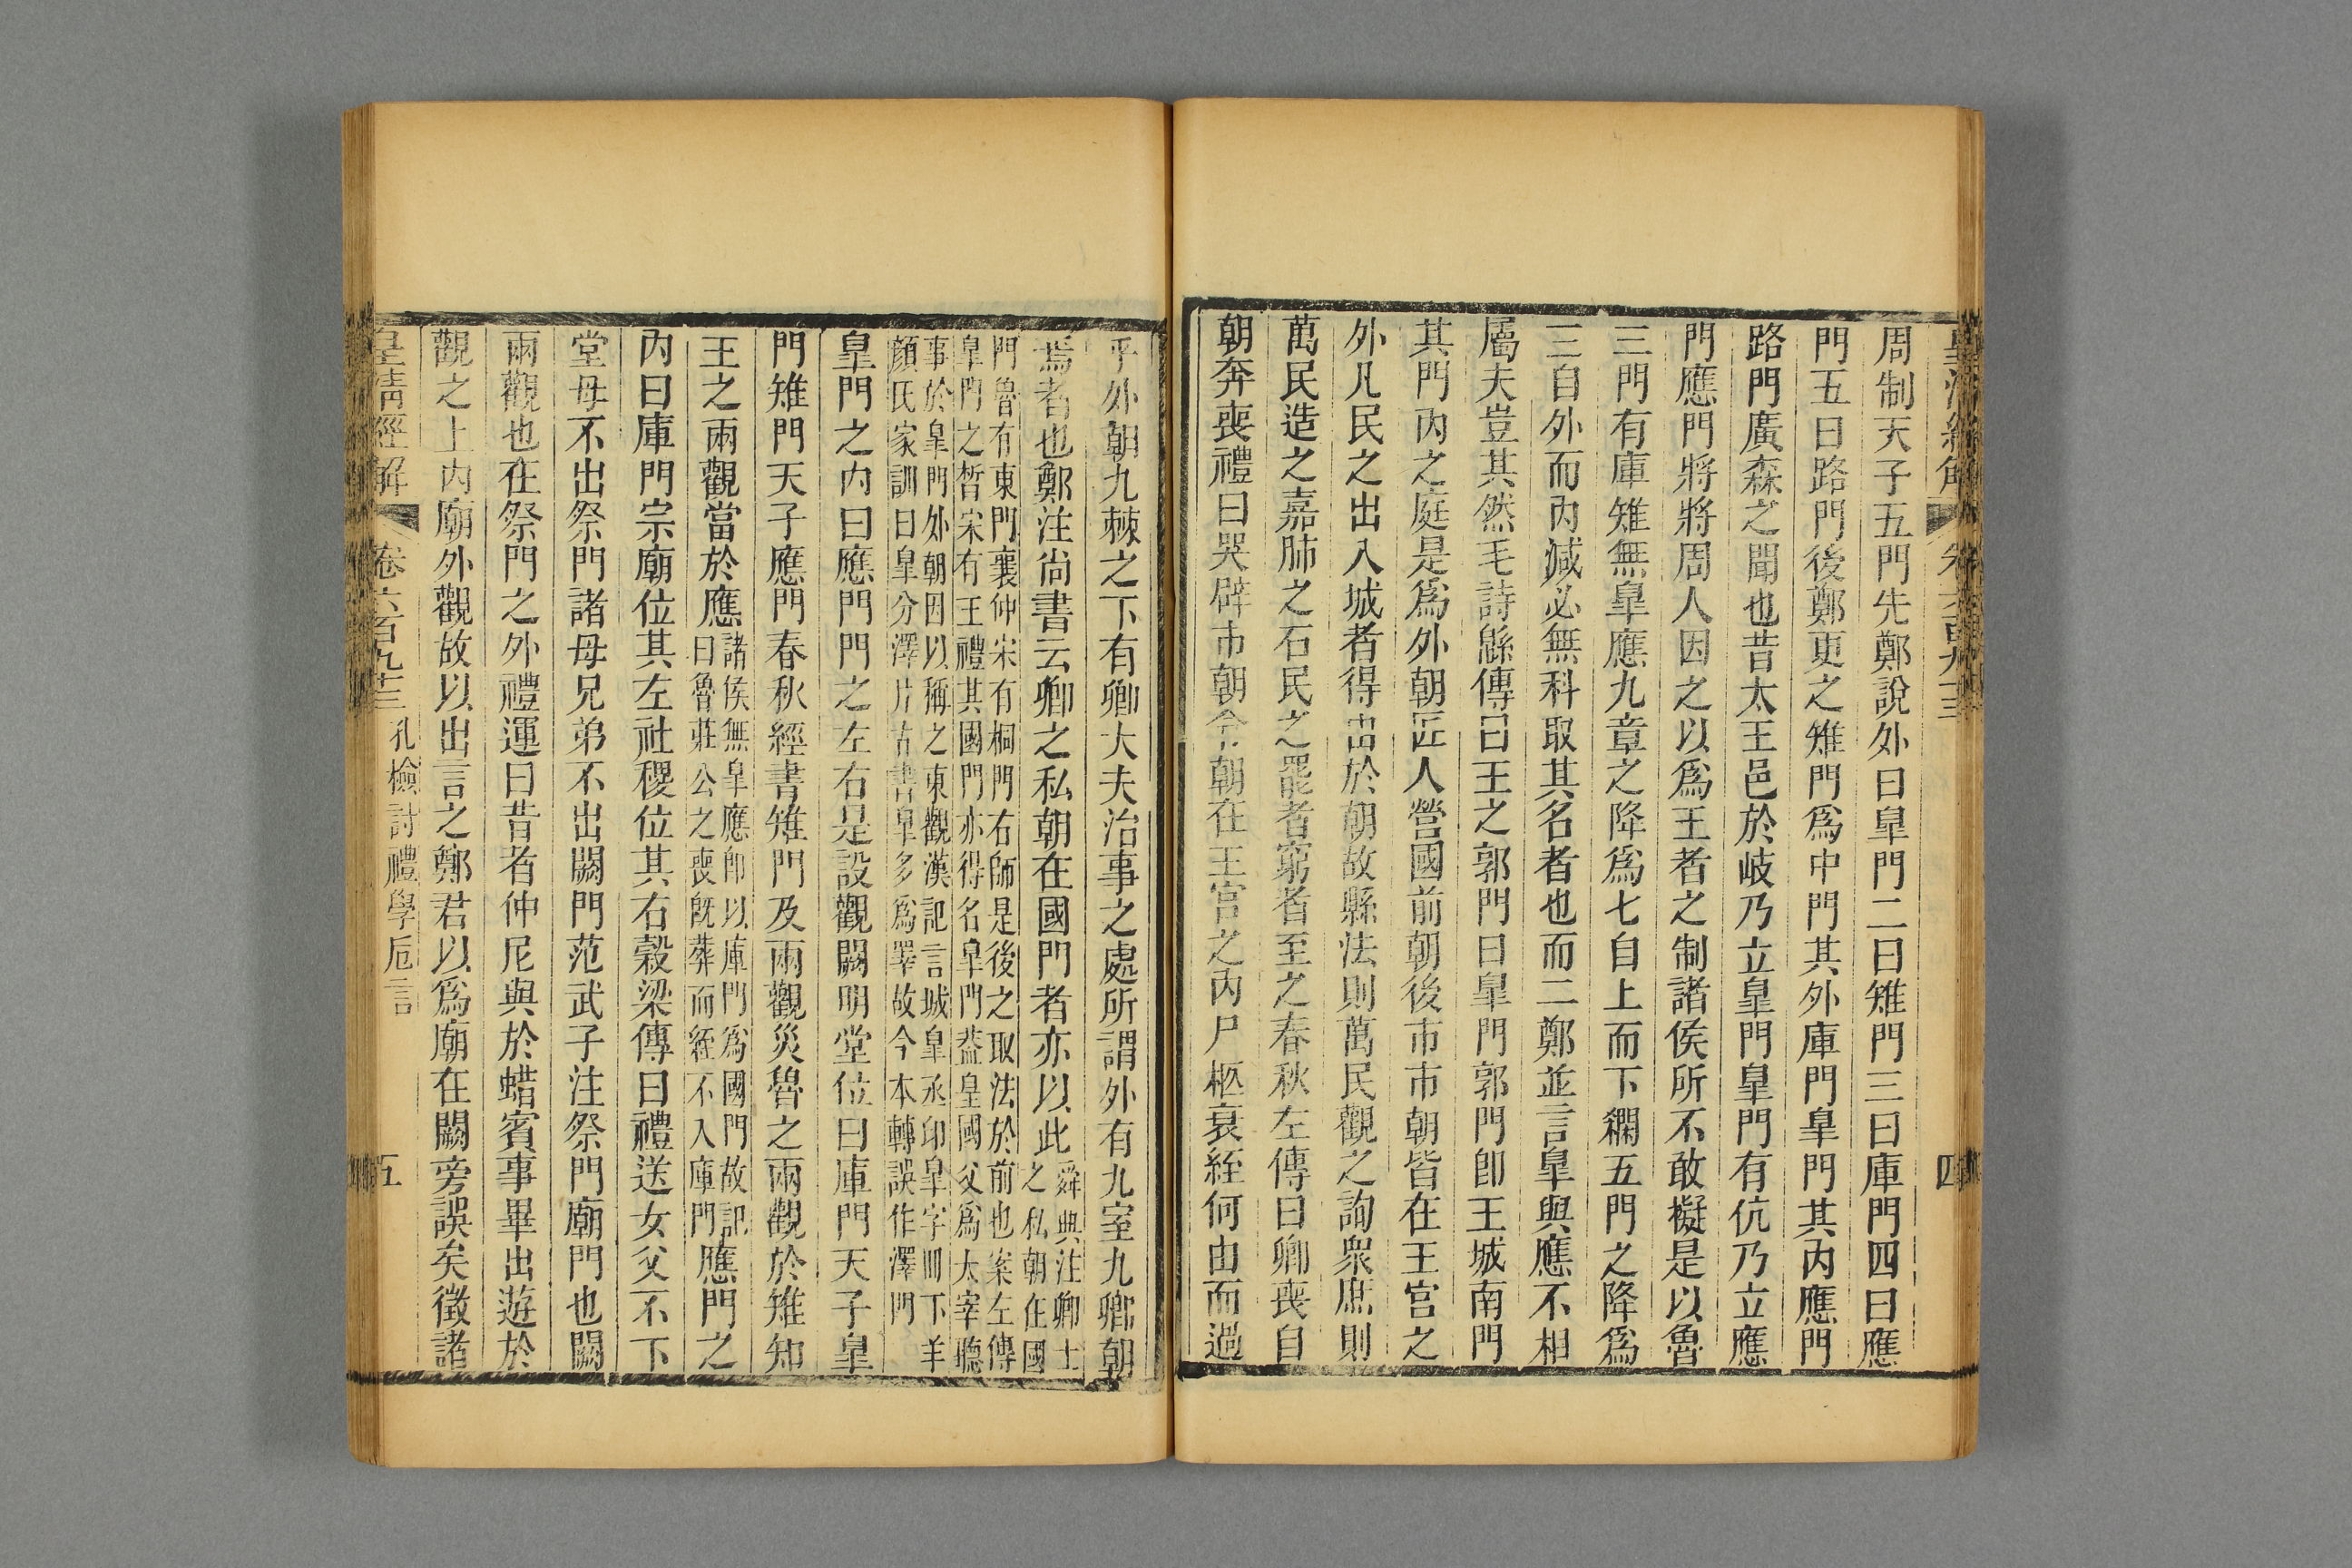 皇清經解 卷六百九十三 四
周制天子五門先鄭說外曰皐門二曰雉門三曰庫門四曰應
門五曰路門後鄭更之雉門爲中門其外庫門皐門其內應門
路門廣森之聞也昔太王邑於岐乃立皐門皐門有伉乃立應
門應門將將周人因之以爲王者之制諸侯所不敢擬是以魯
三門有庫雉無皐應九章之降爲七自上而下襴五門之降爲
三自外而內減必無科取其名者也而二鄭並言皐與應不相
屬夫豈其然毛詩緜傳曰王之郭門曰皐門郭門卽王城南門
其門內之庭是爲外朝匠人營國前朝後市市朝皆在王宮之
外凡民之出入城者得由於朝故縣法則萬民觀之詢衆庶則
萬民造之嘉肺之石民之罷者窮者至之春秋左傳曰卿喪自
朝奔喪禮曰哭辟市朝令市朝在王宮之內尸柩衰絰何由而過
乎外朝九棘之下有卿大夫治事之處所謂外有九室九卿朝
焉者也鄭注尚書云卿之私朝在國門者亦以此舜典注卿士之私朝在國
門魯有東門襄仲宋有桐門右師是後之取法於前也案左傳
皐門之晳宋有王禮其國門亦得名皐門葢皇國父爲太宰聽
事於皐門外朝因以稱之東觀漢記言城皐丞印皐字四下羊
顏氏家訓曰皐分澤片古書皐多爲睪故今本轉誤作澤門
皐門之內曰應門門之左右是設觀闕明堂位曰庫門天子皐
門雉門天子應門春秋經書雉門及兩觀災魯之兩觀於雉知
王之兩觀當於應諸侯無皐應卽以庫門爲國門故記曰魯莊公之喪旣葬而絰不入庫門應門之
內曰庫門宗廟位其左社稷位其右穀梁傳曰禮送女父不下
堂母不出祭門諸母兄弟不出闕門范武子注祭門廟門也闕
兩觀也在祭門之外禮運曰昔者仲尼與於蜡賓事畢出遊於
觀之上內廟外觀故以出言之鄭君以爲廟在闕旁誤矣徵諸
皇清經解 卷六百九十三 孔檢討禮學卮言 五